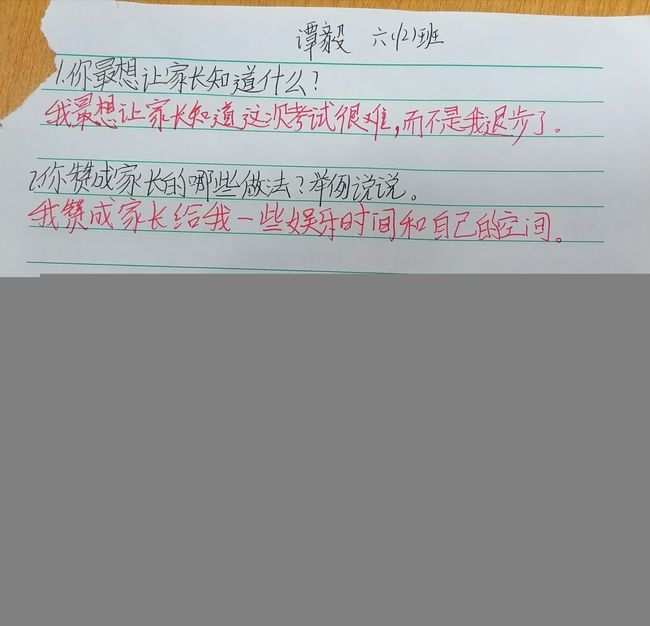 谭毅 六(2)班
1.你最想让家长知道什么?
我最想让家长知道这次考试很难,而不是我退步了。
2.你赞成家长的哪些做法?举例说说。
我赞成家长给我一些娱乐时间和自己的空间。